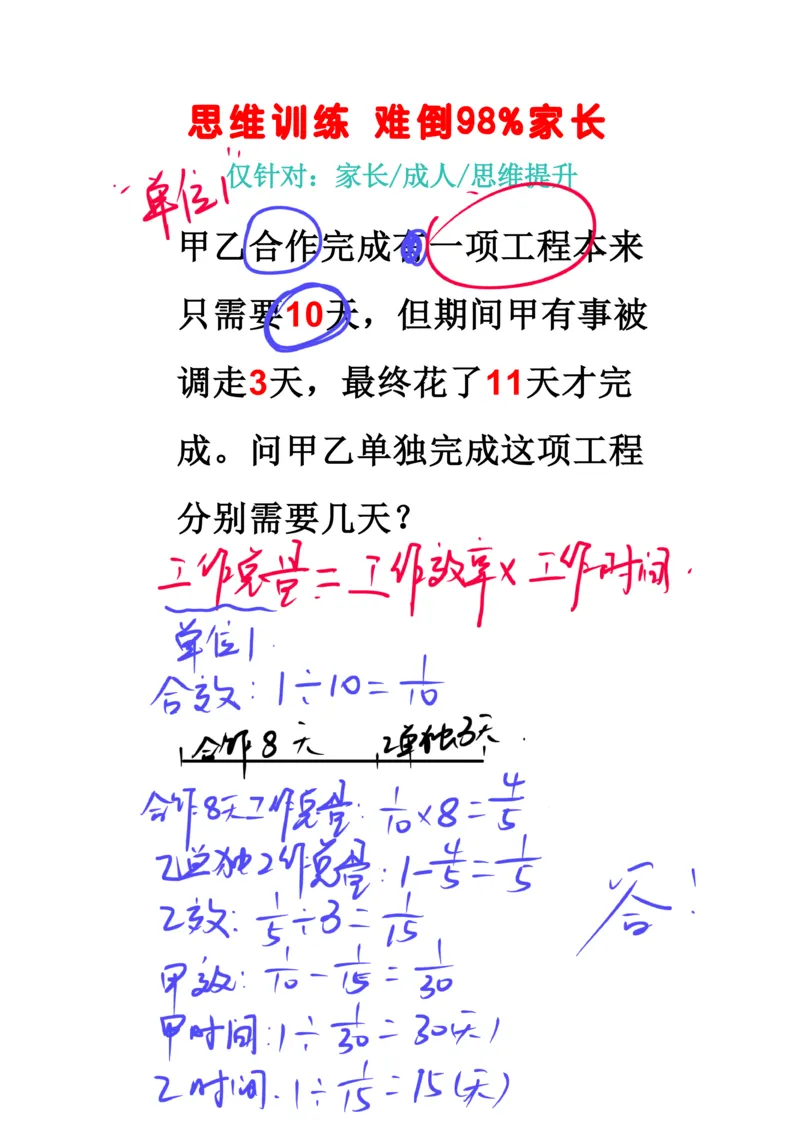 思维训练 难倒98%家长
仅针对：家长/成人/思维提升
"单位1"
甲乙合作完成有一项工程本来
只需要10天，但期间甲有事被
调走3天，最终花了11天才完
成。问甲乙单独完成这项工程
分别需要几天？
工作总量=工作效率×工作时间.
单位1
合效：1÷10=1/10
合作8天 乙单独3天
合作8天工作总量：1/10×8=4/5
乙单独工作总量：1-4/5=1/5
乙效：1/5÷3=1/15
甲效：1/10-1/15=1/30
答！
甲时间：1÷1/30=30(天)
乙时间.1÷1/15=15(天)